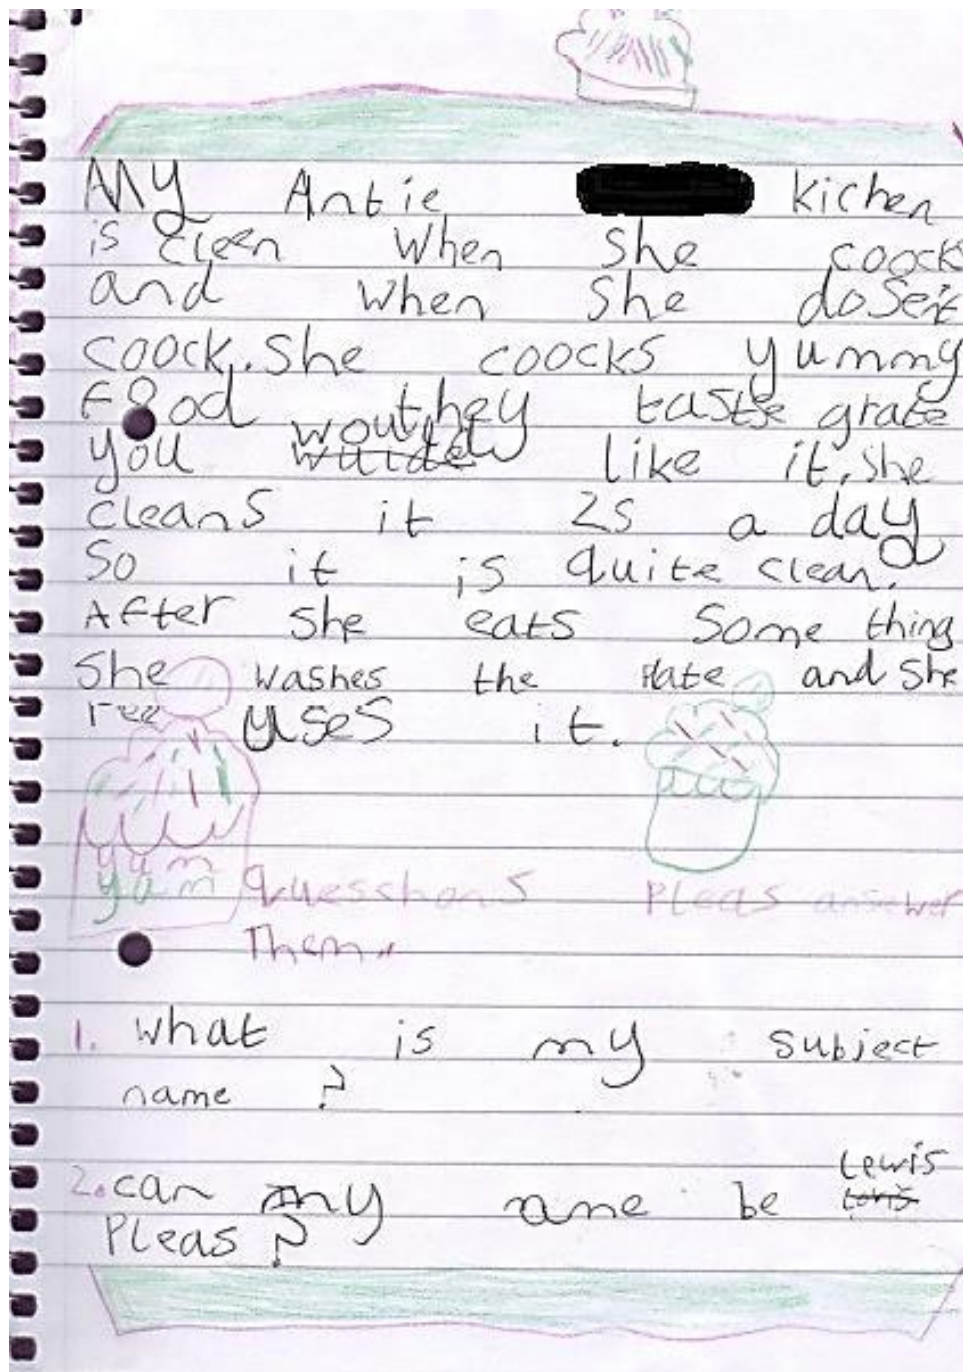 My Antie kichen
is cleen when she coock
and when she doseit
coock. she coocks yummy
food they taste grate
you would like it. she
cleans it 2s a day
so it is quite clean.
After she eats some thing
she washes the Plate and she
ree uses it.
yum
yam quesshons Pleas ansewer
Them.
1. what is my subject
name ?
2. can my name be Lewis
Pleas ?